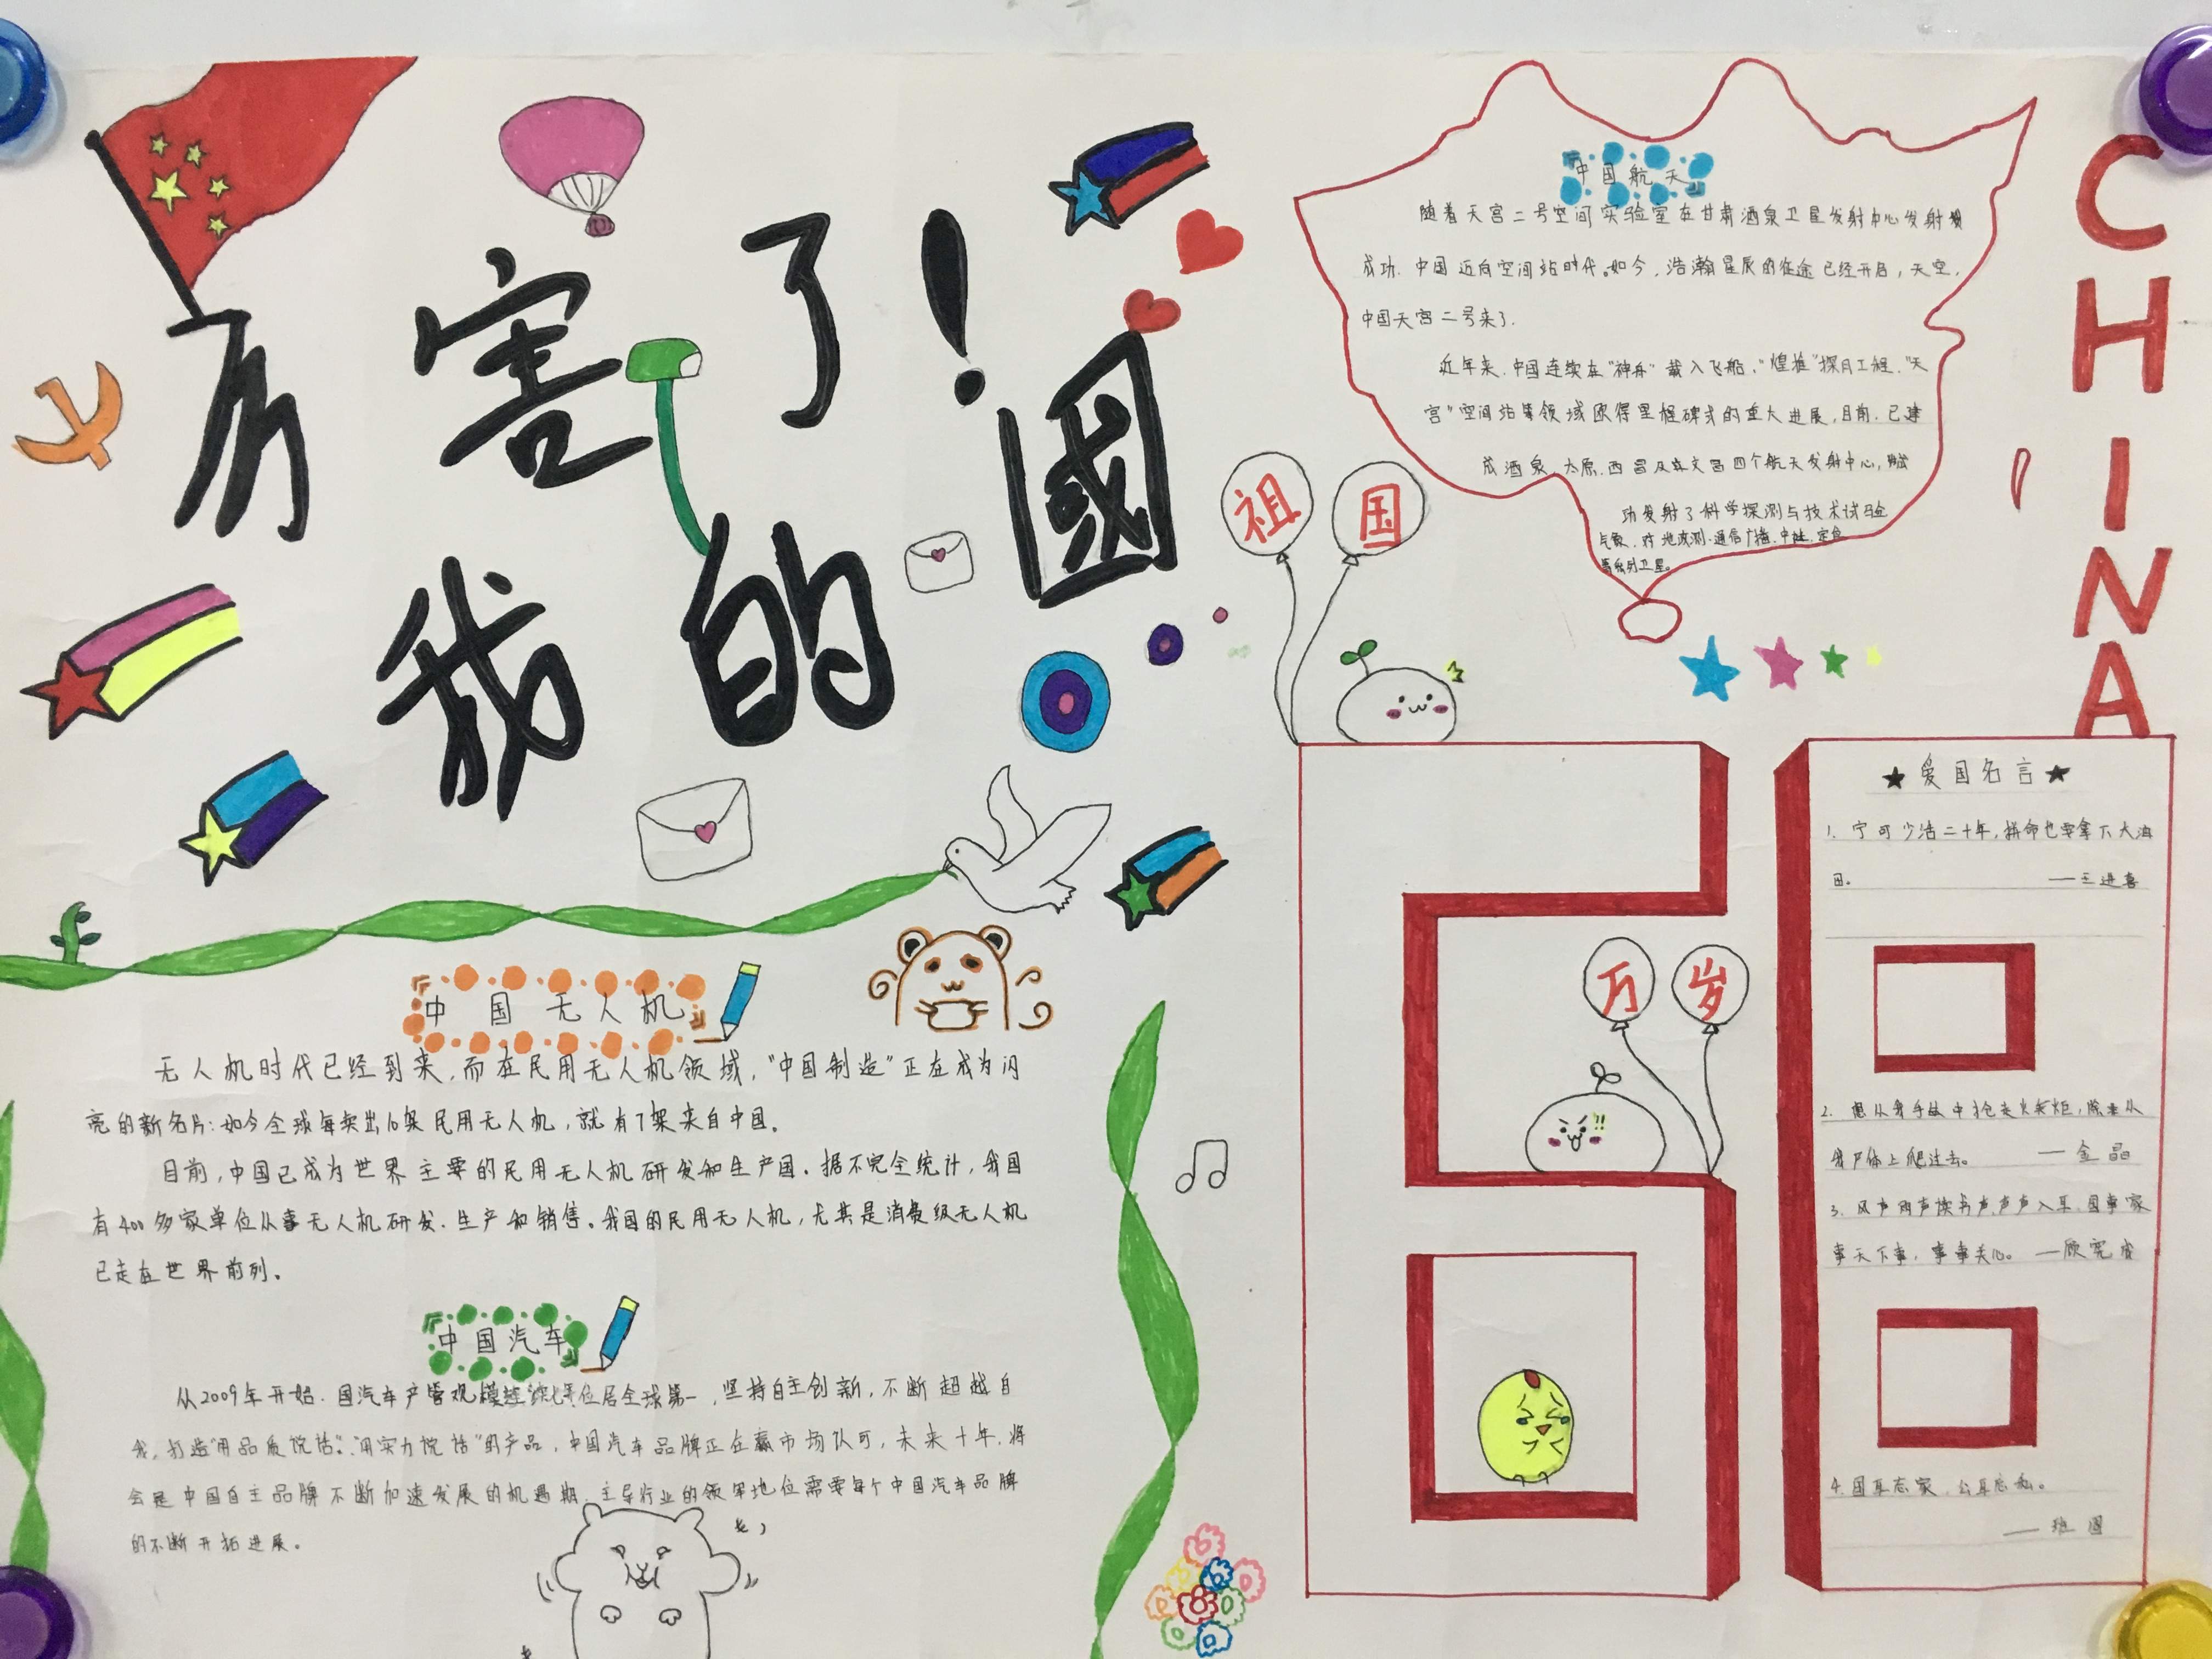 厉害了!
我的國
『中国航天』
随着天宫二号空间实验室在甘肃酒泉卫星发射中心发射
成功,中国迈向空间站时代。如今,浩瀚星辰的征途已经开启,天空,
中国天宫二号来了.
近年来,中国连续在"神舟"载入飞船,"煌娥"探月工程,"天
宫"空间站等领域取得里程碑式的重大进展,目前,已建
成酒泉,太原,西昌及文昌四个航天发射中心,
功发射了科学探测与技术试验
气象,对地观测,通信广播,中继,定位
等系列卫星。
CHINA
祖国
万岁
68
★爱国名言★
1.宁可少活二十年,拼命也要拿下大油
田。 ——王进喜
2.想从我手故中抢走火炬,除非从
我尸体上爬过去。 —金晶
3.风声雨声读书声,声声入耳,国事家
事天下事,事事关心。—顾宪成
4.国耳忘家,公耳忘私。
——班固
『中国无人机』
无人机时代已经到来,而在民用无人机领域,"中国制造"正在成为闪
亮的新名片:如今全球每卖出10架民用无人机,就有7架来自中国。
目前,中国已成为世界主要的民用无人机研发和生产国。据不完全统计,我国
有400多家单位从事无人机研发、生产和销售。我国的民用无人机,尤其是消费级无人机
已走在世界前列。
『中国汽车』
从2009年开始,国汽车产业规模连续七年位居全球第一,坚持自主创新,不断超越自
我,打造"用品质说话","用实力说话"的产品,中国汽车品牌正在赢市场认可,未来十年,将
会是中国自主品牌不断加速发展的机遇期,主导行业的领军地位需要每个中国汽车品牌
的不断开拓进展。